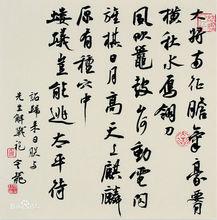 大將南征胆氣豪腰
橫秋水雁翎刀
風吹鼉鼓山河動電閃
旌旗日月高天上麒麟
原有種穴中
螻蟻豈能逃太平待
詔歸來日朕與
先生解戰袍